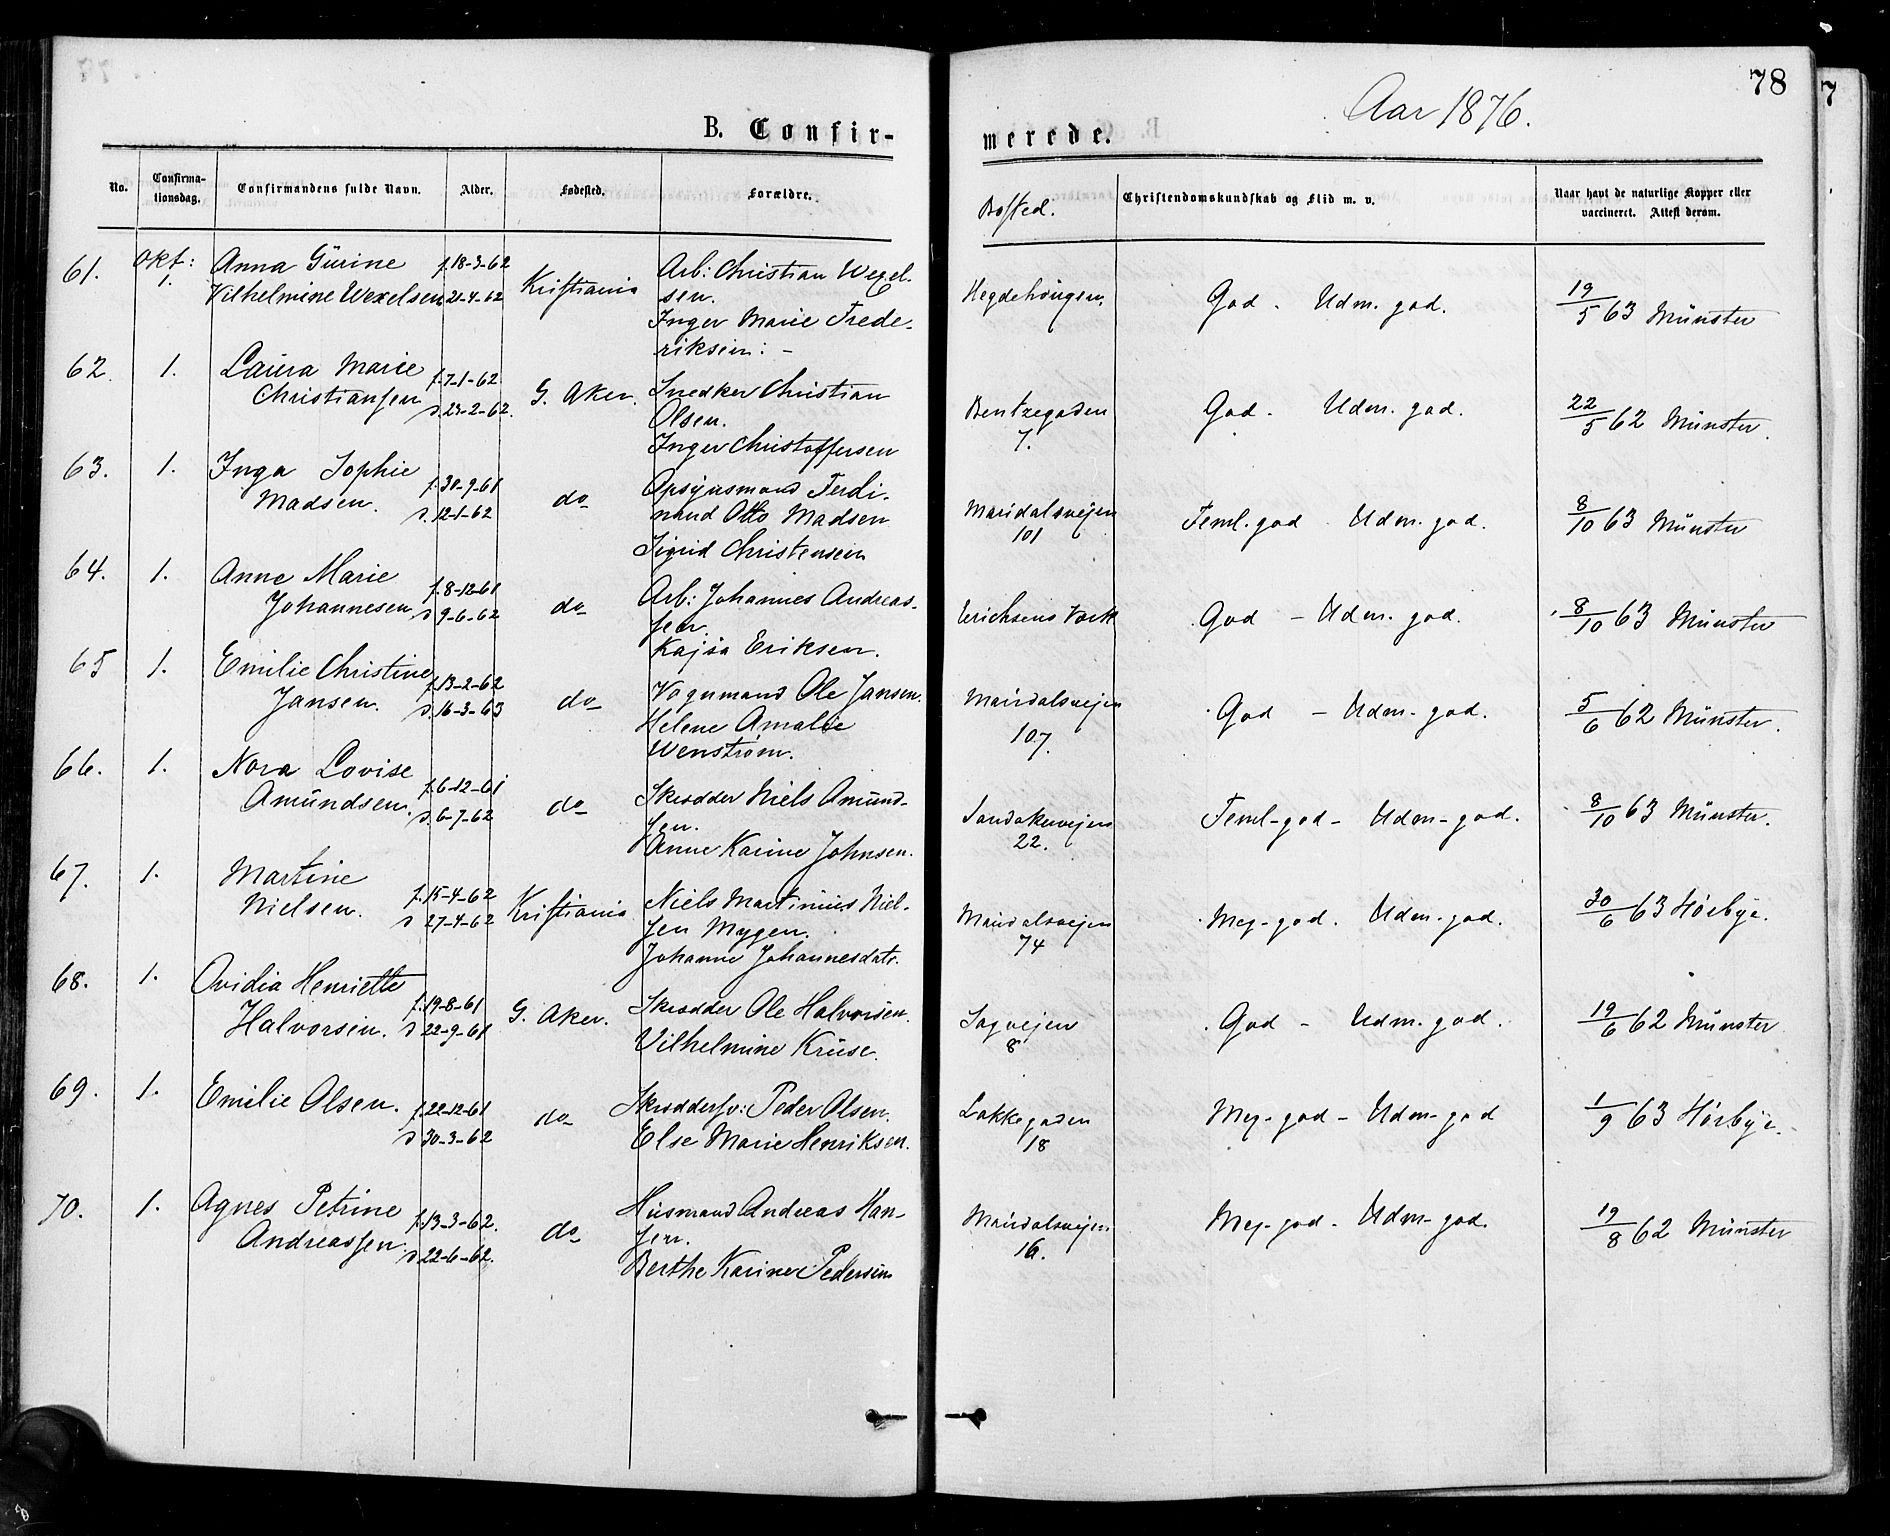 78
7
Aar 1876.
B. Confir-
merede.
No.
Confirma-
tionsdag.
Confirmandens fulde Navn.
Alder.
Fødested.
Forældre.
Bosted.
Christendomskundskab og Flid m. v.
Naar havt de naturlige Kopper eller
vaccineret. Attest derom.
61. Okt: 1. Anna Gurine f. 18-3-62 Kristiania Arb: Christian Wexel- Hegdehaugen. God - Udm. god. 19/5 63 Münster
Vilhelmine Wexelsen 21-4-62 sen.
Inger Marie Frede-
riksen: -
62. 1. Laura Marie f. 7-1-62 G. Aker. Snedker Christian Bentzegaden God - Udm. god. 22/5 62 Münster.
Christiansen d. 23-2-62. Olsen. 7.
Inger Christoffersen
63. 1. Inga Sophie f. 30-9-61 do Opsynsmand Ferdi- Maridalsveien Teml. god Udm. god. 8/10 63 Münster
Madsen. d. 12-1-62 nand Otto Madsen 101
Sigrid Christensen
64. 1. Anne Marie f. 8-12-61 do Arb: Johannes Andreas- Erichsens Værk God - Udm. god. 8/10 63 Münster
Johannesen d. 9-6-62 sen.
Kajsa Eriksen.
65 1. Emilie Christine f. 13-2-62 do Vognmand Ole Jansen. Maridalsveien God - Udm. god. 5/6 62 Münster.
Jansen. d. 16-3-63 Helene Amalie 107.
Wenstrøm.
66. 1. Nora Lovise f. 6-12-61 do Skrædder Niels Amund- Sandakerveien Teml-god - Udm-god. 8/10 63 Münster.
Amundsen. d. 6-7-62 sen. 22.
Anne Karine Johnsen.
67. 1. Martine f. 15-4-62 Kristiania Niels Martinius Niel- Maridalsveien Meg-god. Udm-god. 30/6 63 Hørbye.
Nielsen. d 27-4-62 sen Mygen. 74
Johanne Johannesdatr.
68. 1. Ovidia Henriette f. 19-8-61 G. Aker. Skrædder Ole Halvorsen. Sagveien God - Udm. god. 19/6 62 Münster
Halvorsen. d 22-9-61 Vilhelmine Kruse. 8
69. 1. Emilie Olsen. f. 22-12-61 do Skræddersv: Peder Olsen. Lakkegaden Meg-god - Udm-god 1/9 63 Hørbye.
d 30-3-62 Else Marie Henriksen. 18
70. 1. Agnes Petrine f. 13-3-62. do Husmand Andreas Han- Maridalsveien Meg-god - Udm-god. 19/8 62 Münster
Andreassen. d 22-6-62. sen. 16.
Berthe Karine Pedersen